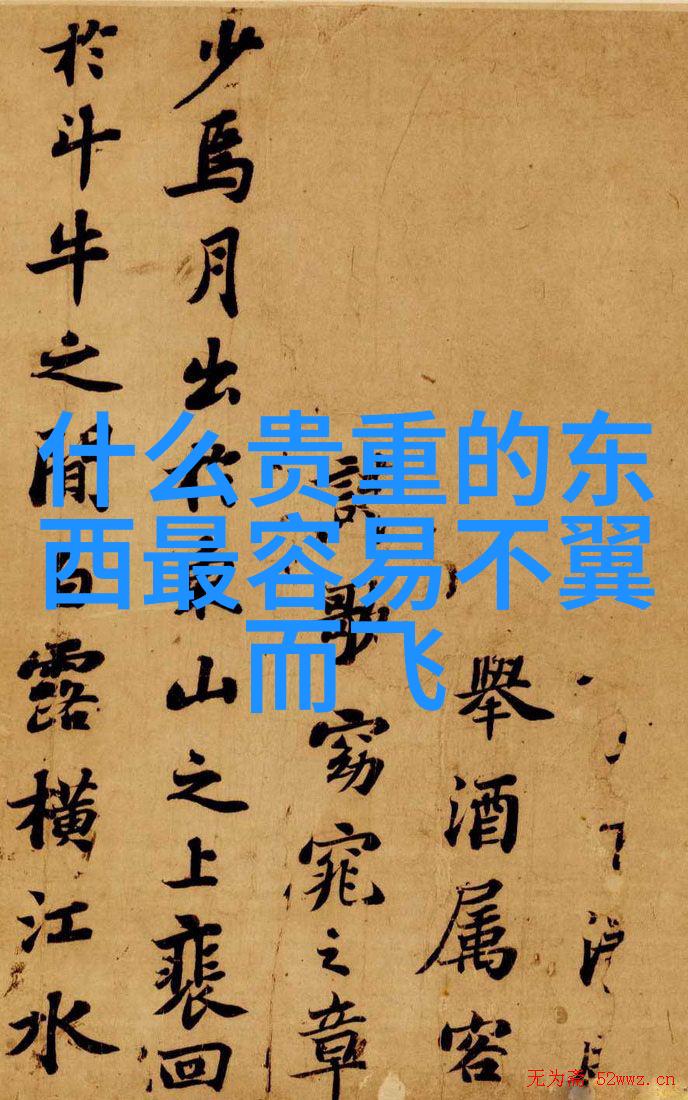 什么贵重的东
西最容易不翼
而飞
舉酒属客
窈窕之章
少焉月出於東山之上裴回
於斗牛之間白露橫江水
无为斋 52wwz.cn